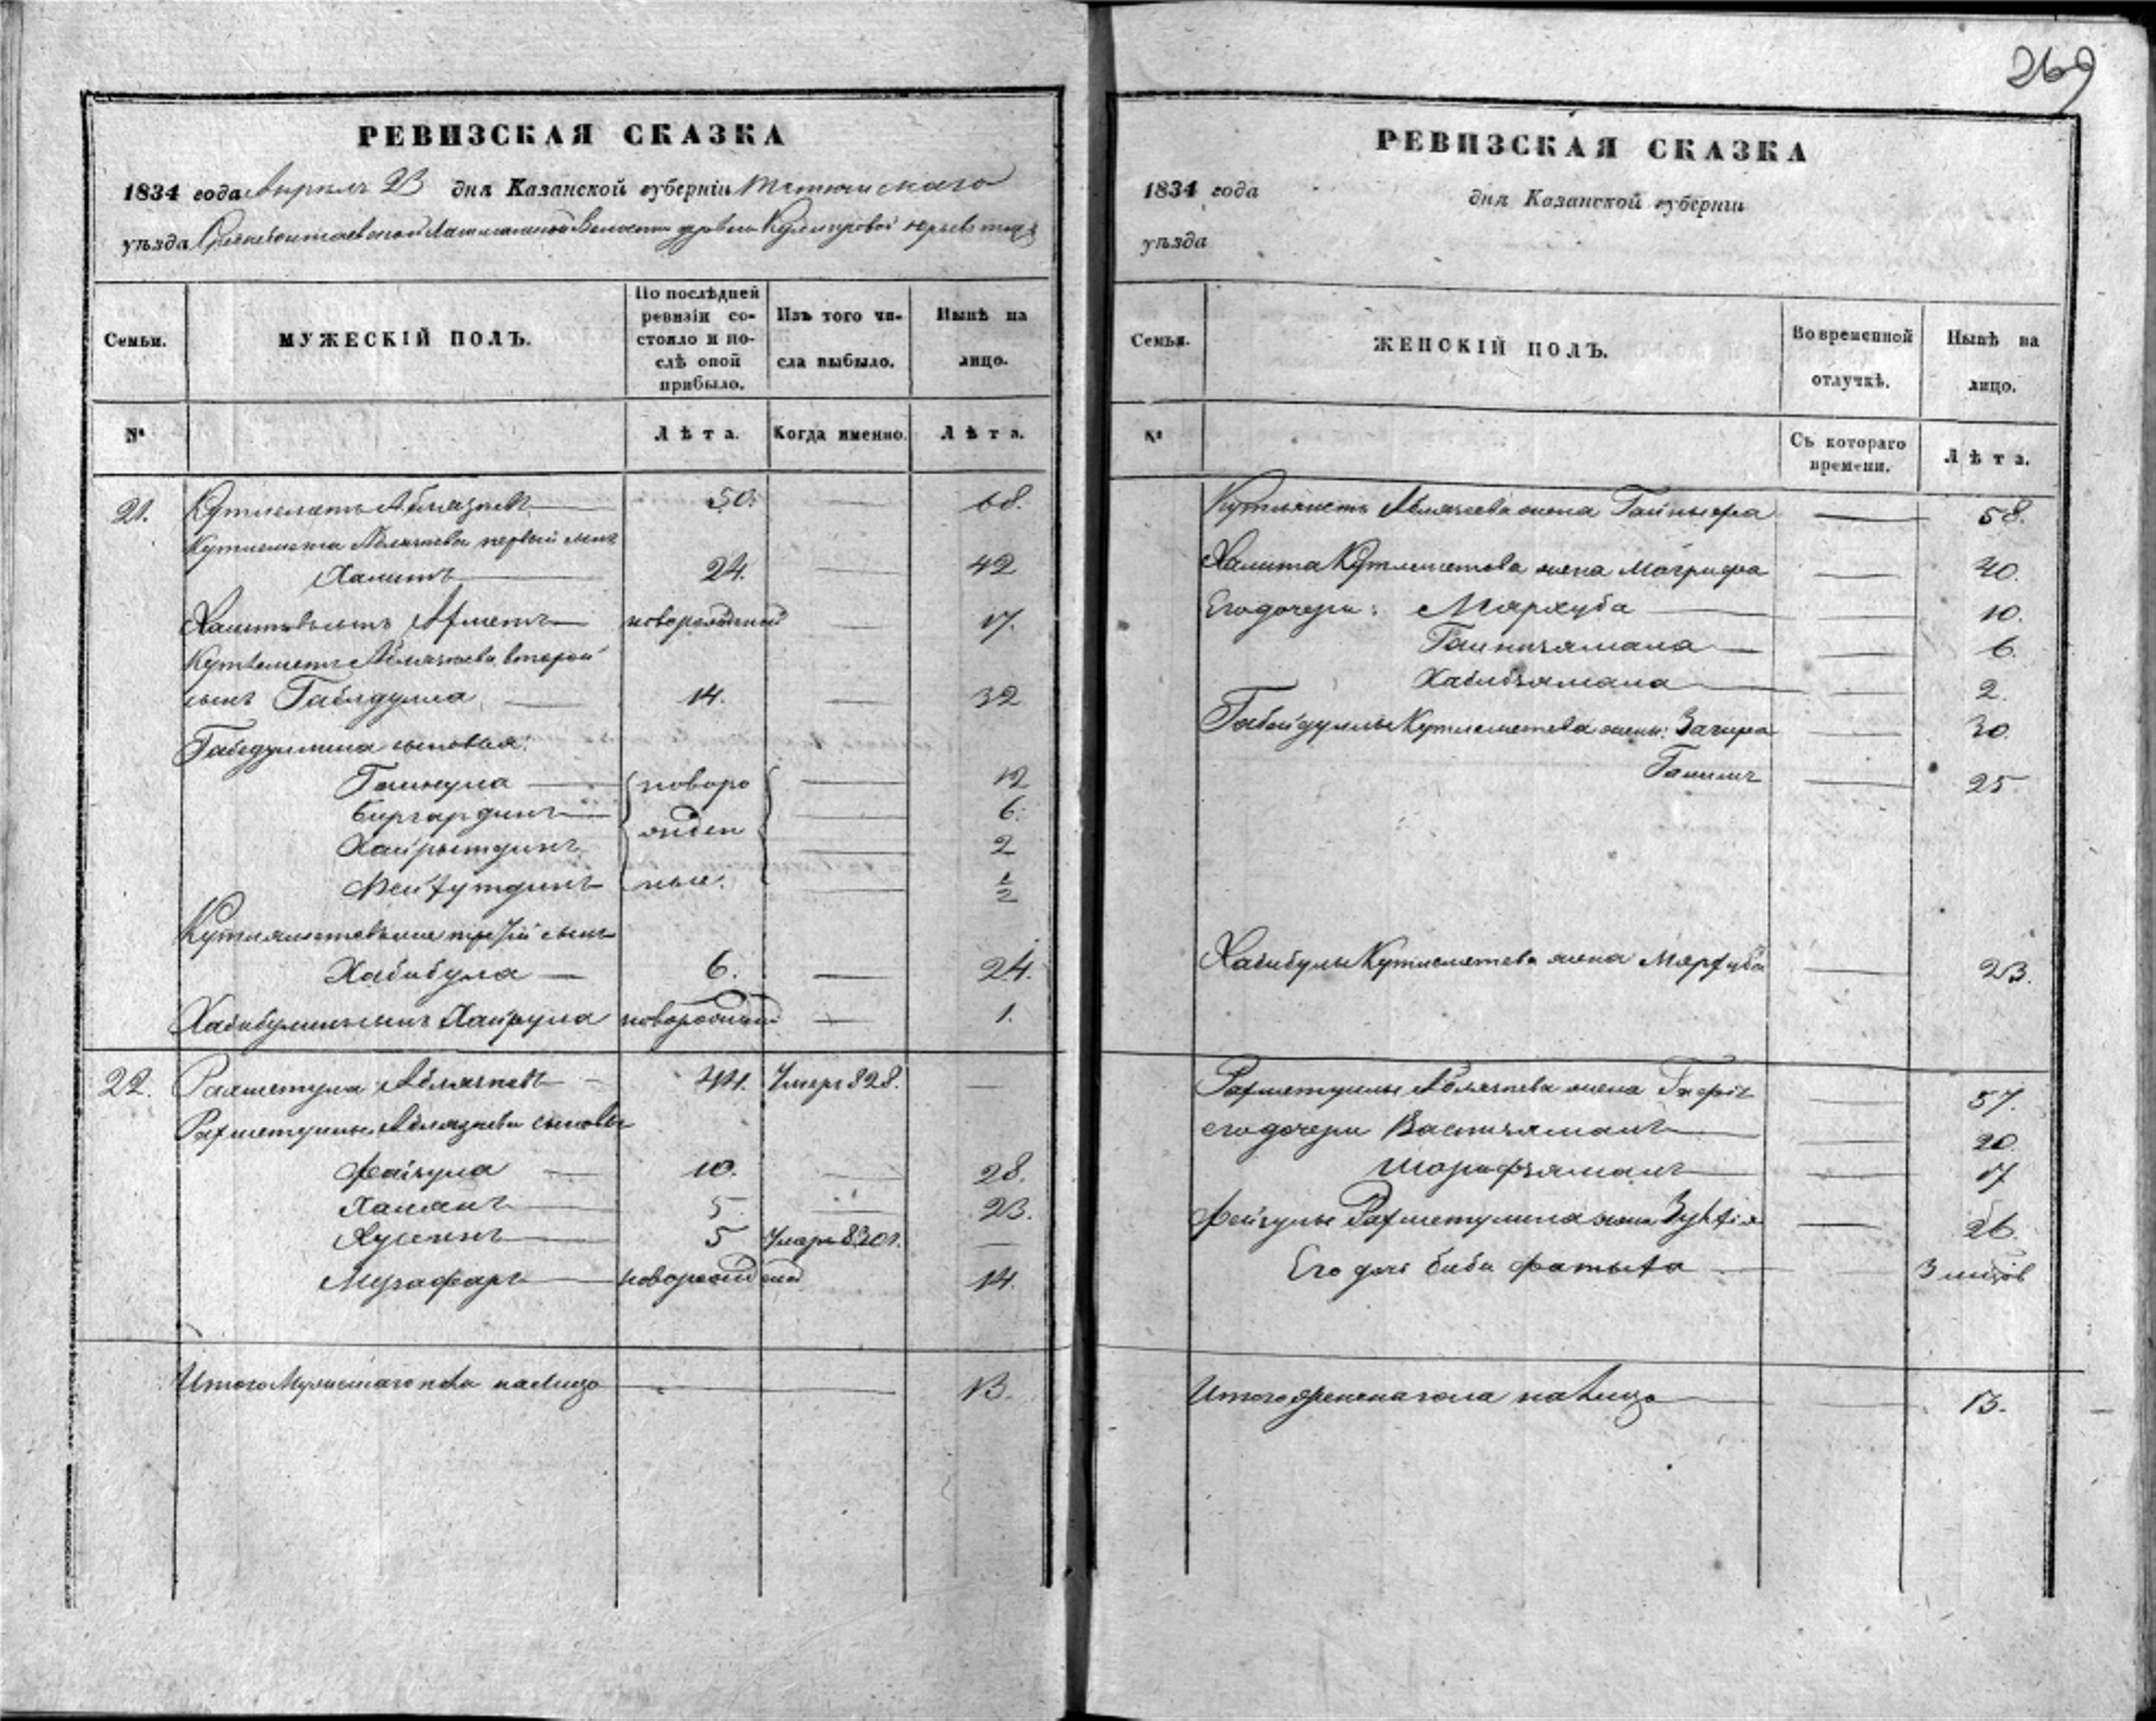 269
РЕВИЗСКАЯ СКАЗКА
1834 года Апреля 23 дня Казанской губернiи Тетюшскаго
уѣзда Лашманной Волости деревни
Семьи. МУЖЕСКIЙ ПОЛЪ. По послѣдней ревизiи состояло и послѣ оной прибыло. Изъ того числа выбыло. Нынѣ на лицо.
№ Лѣта. Когда именно. Лѣта.
21. Кутлеметъ Аблязовъ 50. — 68.
Кутлемета Аблязова первый сынъ
Халитъ 24. — 42
Халитовъ сынъ Ахметъ новорожденный 17.
Кутлеметъ Аблязова второй
сынъ Габядулла 14. — 32
Габедуллина сыновья:
Гайнула — 12
Бургардинъ — 6.
Хайрытдинъ — 2
Сейфутдинъ — 1/2
новорожденные.
Кутляметовъ третiй сынъ
Хабибула — 6. — 24.
Хабибулинъ сынъ Хайрула новорожденный — 1.
22. Рахметула Аблязовъ — 44. Умеръ 828. —
Рахметуллы Аблязова сыновья
Файзула — 10. — 28.
Хананъ 5. — 23.
Хусеинъ 5 Умеръ 830 г. —
Музафаръ новорожденной 14.
Итого Мужескаго пола налицо 13.
РЕВИЗСКАЯ СКАЗКА
1834 года дня Казанской губернiи
уѣзда
Семьи. ЖЕНСКIЙ ПОЛЪ. Во временной отлучкѣ. Нынѣ на лицо.
№ Съ котораго времени. Лѣта.
Кутлеметъ Аблязова жена — 58.
Халита Кутлеметова жена Магрифа — 40.
Его дочери: Мархуба — 10.
Гайнизямала — 6.
Хабибзямала — 2.
Габейдуллы Кутлеметева жены: Загира — 30.
Галимъ — 25
Хабибулы Кутлеметева жена Мархуба — 23.
Рахметуллы Аблязова жена — 57.
его дочери Васпизяманъ — 20.
Шарифзяманъ — 17
Фейзулы Рахметулина жена — 26.
Его дочь Биби Фатыха — 3 мцовъ
Итого женска пола на лицо — 13.